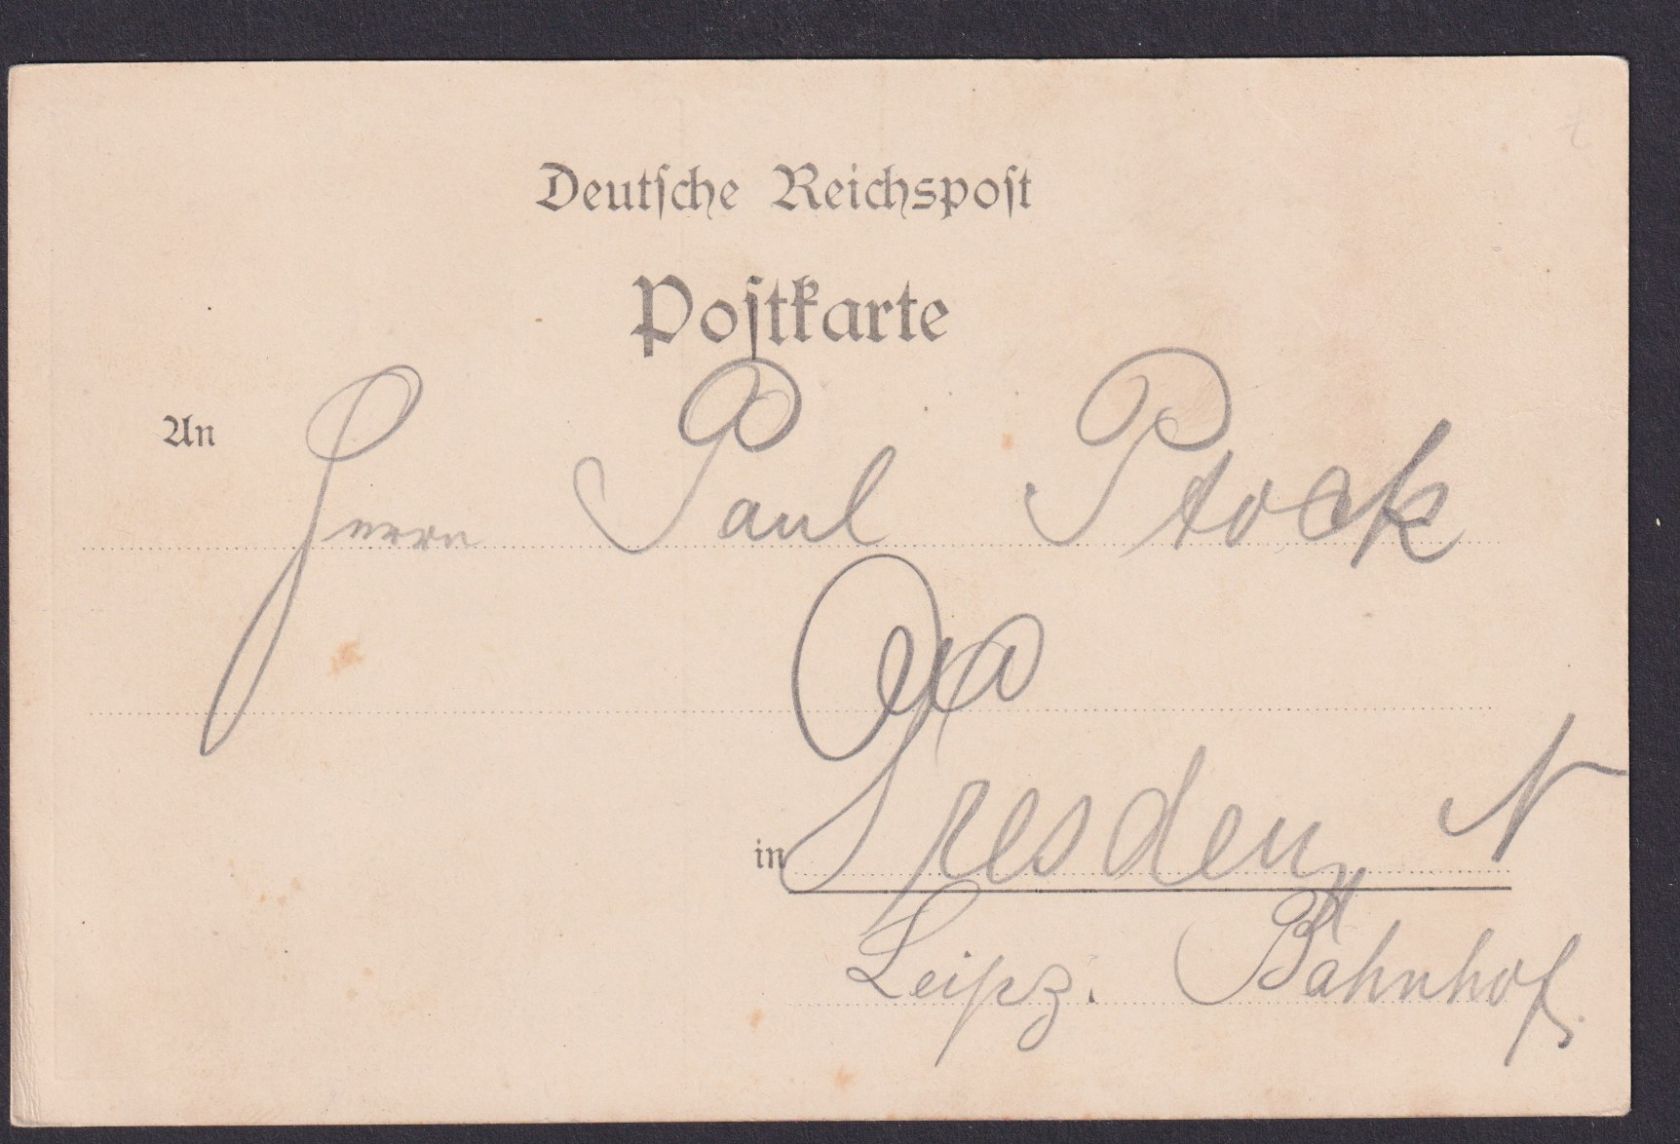 Deutsche Reichspost
Postkarte
An Herrn Paul Ptock
in Dresden N
Leipz. Bahnhof.